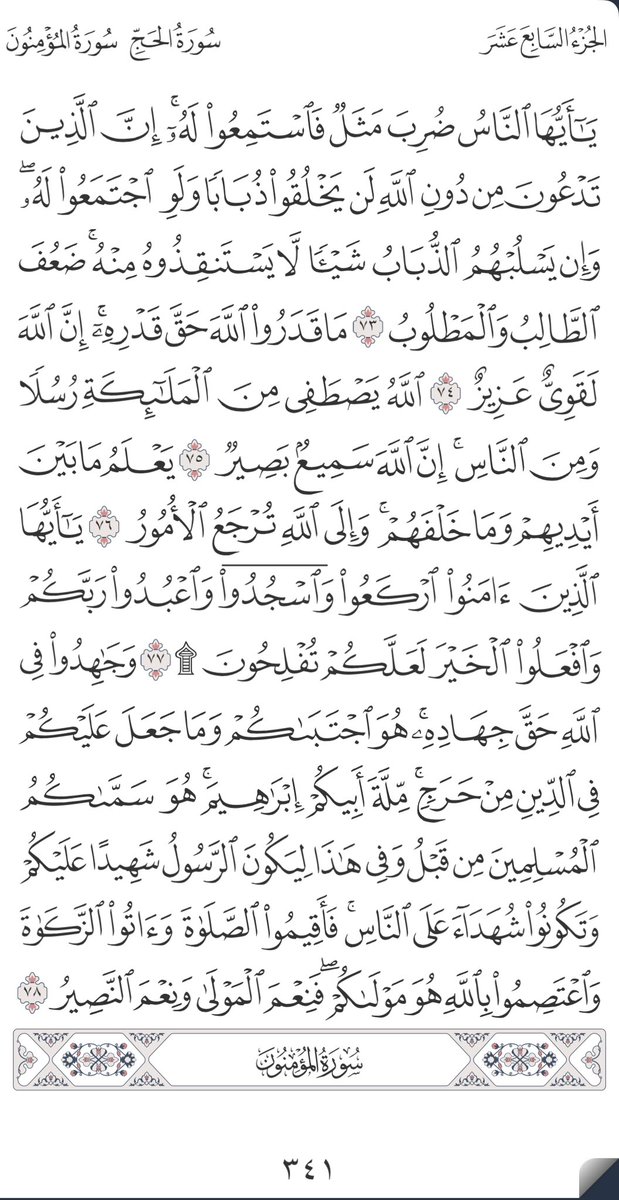 الجُزْءُ السَّابِعَ عَشَرَ سُورَةُ الحَجِّ سُورَةُ المُؤْمِنُونَ
يَـٰٓأَيُّهَا ٱلنَّاسُ ضُرِبَ مَثَلٌ فَٱسْتَمِعُوا۟ لَهُۥٓ ۚ إِنَّ ٱلَّذِينَ
تَدْعُونَ مِن دُونِ ٱللَّهِ لَن يَخْلُقُوا۟ ذُبَابًا وَلَوِ ٱجْتَمَعُوا۟ لَهُۥ ۖ
وَإِن يَسْلُبْهُمُ ٱلذُّبَابُ شَيْـًٔا لَّا يَسْتَنقِذُوهُ مِنْهُ ۚ ضَعُفَ
ٱلطَّالِبُ وَٱلْمَطْلُوبُ ٧٣ مَا قَدَرُوا۟ ٱللَّهَ حَقَّ قَدْرِهِۦٓ ۚ إِنَّ ٱللَّهَ
لَقَوِىٌّ عَزِيزٌ ٧٤ ٱللَّهُ يَصْطَفِى مِنَ ٱلْمَلَـٰٓئِكَةِ رُسُلًا
وَمِنَ ٱلنَّاسِ ۚ إِنَّ ٱللَّهَ سَمِيعٌۢ بَصِيرٌ ٧٥ يَعْلَمُ مَا بَيْنَ
أَيْدِيهِمْ وَمَا خَلْفَهُمْ ۚ وَإِلَى ٱللَّهِ تُرْجَعُ ٱلْأُمُورُ ٧٦ يَـٰٓأَيُّهَا
ٱلَّذِينَ ءَامَنُوا۟ ٱرْكَعُوا۟ وَٱسْجُدُوا۟ وَٱعْبُدُوا۟ رَبَّكُمْ
وَٱفْعَلُوا۟ ٱلْخَيْرَ لَعَلَّكُمْ تُفْلِحُونَ ۩ ٧٧ وَجَـٰهِدُوا۟ فِى
ٱللَّهِ حَقَّ جِهَادِهِۦ ۚ هُوَ ٱجْتَبَىٰكُمْ وَمَا جَعَلَ عَلَيْكُمْ
فِى ٱلدِّينِ مِنْ حَرَجٍ ۚ مِّلَّةَ أَبِيكُمْ إِبْرَٰهِيمَ ۚ هُوَ سَمَّىٰكُمُ
ٱلْمُسْلِمِينَ مِن قَبْلُ وَفِى هَـٰذَا لِيَكُونَ ٱلرَّسُولُ شَهِيدًا عَلَيْكُمْ
وَتَكُونُوا۟ شُهَدَآءَ عَلَى ٱلنَّاسِ ۚ فَأَقِيمُوا۟ ٱلصَّلَوٰةَ وَءَاتُوا۟ ٱلزَّكَوٰةَ
وَٱعْتَصِمُوا۟ بِٱللَّهِ هُوَ مَوْلَىٰكُمْ ۖ فَنِعْمَ ٱلْمَوْلَىٰ وَنِعْمَ ٱلنَّصِيرُ ٧٨
سُورَةُ المُؤْمِنُونَ
٣٤١